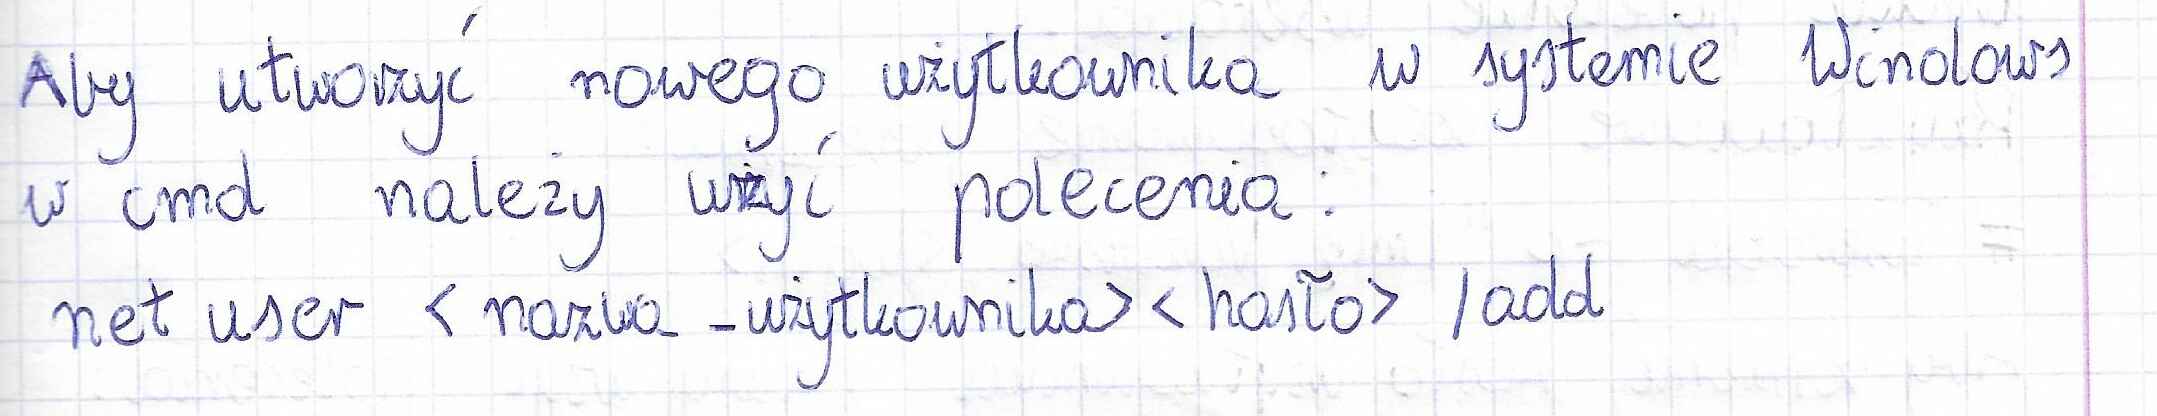 Aby utworzyć nowego użytkownika w systemie Windows
w cmd należy użyć polecenia:
net user <nazwa_użytkownika> <hasło> /add